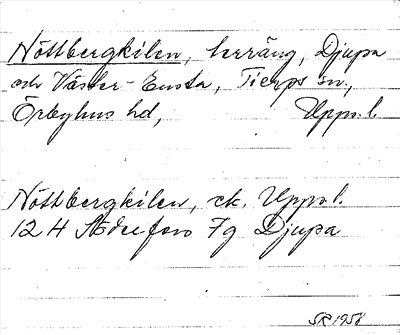 Nöttbergkilen, terräng, Djupa
och Väster-Ensta, Tierps sn.,
Örbyhus hd, Upps.l.
Nöttbergkilen, ek. Upps l.
12 H Söderfors 7g Djupa
SR 1958